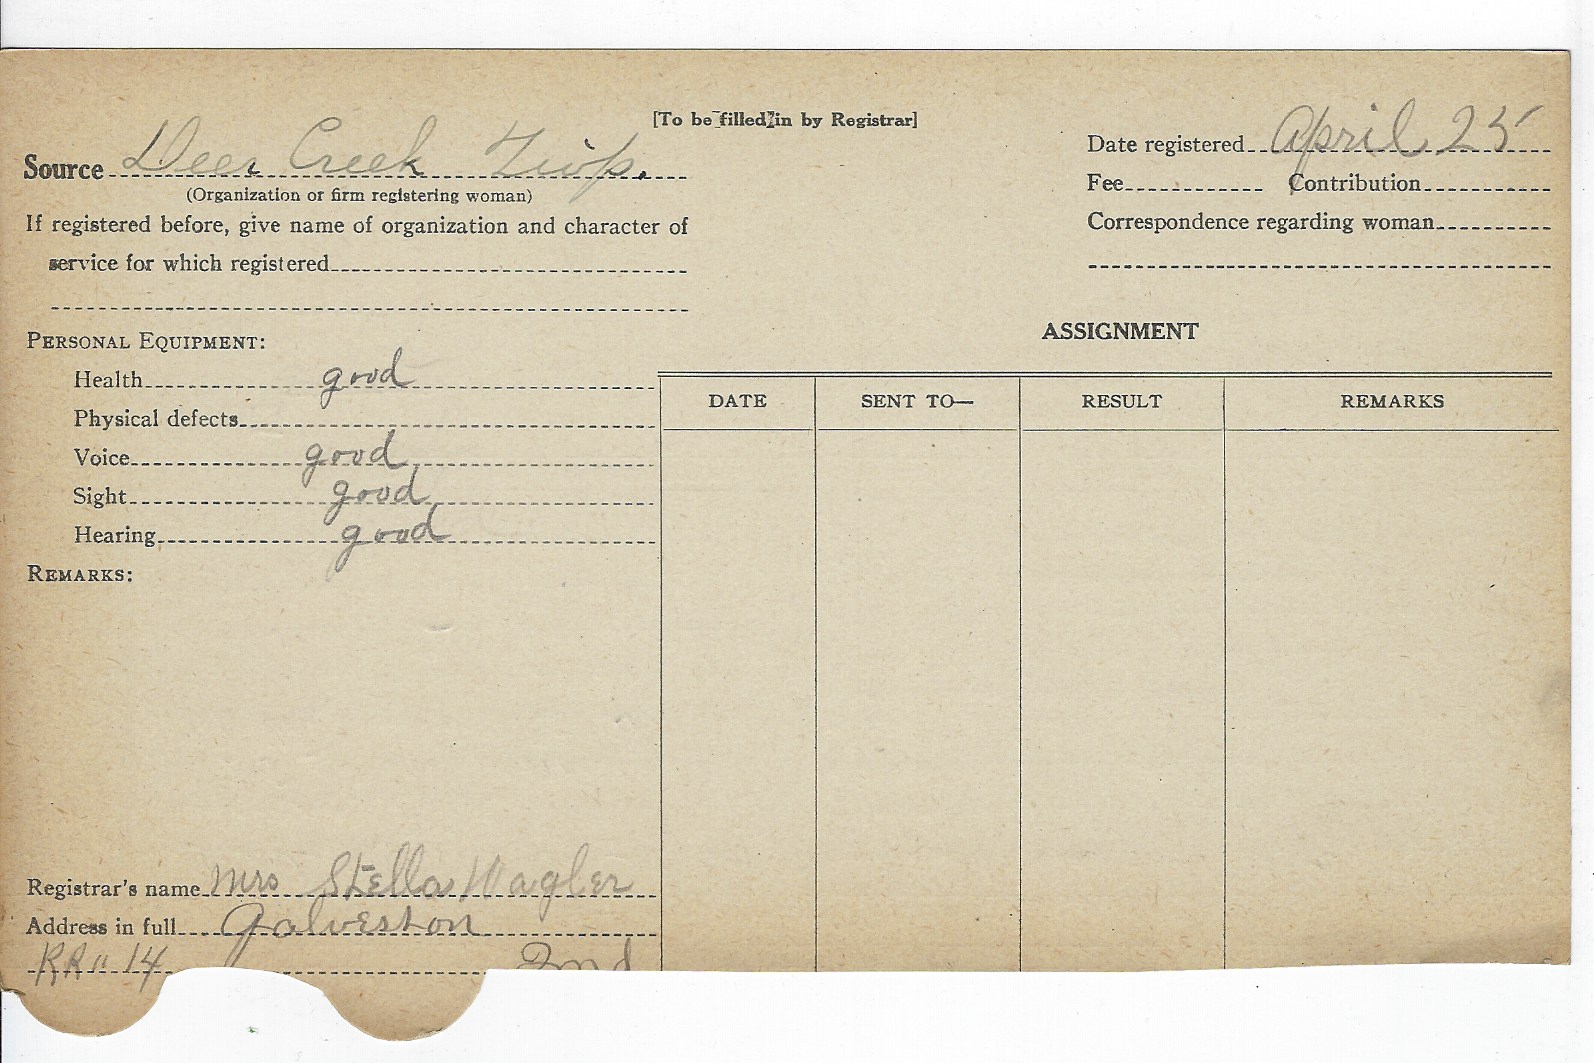 [To be filled in by Registrar]
Source Deer Creek Twp.
(Organization or firm registering woman)
If registered before, give name of organization and character of
service for which registered
Date registered April 25
Fee Contribution
Correspondence regarding woman
PERSONAL EQUIPMENT:
Health good
Physical defects
Voice good
Sight good
Hearing good
REMARKS:
ASSIGNMENT
DATE SENT TO— RESULT REMARKS
Registrar's name Mrs Stella Wagler
Address in full Galveston
RR" 14 Ind